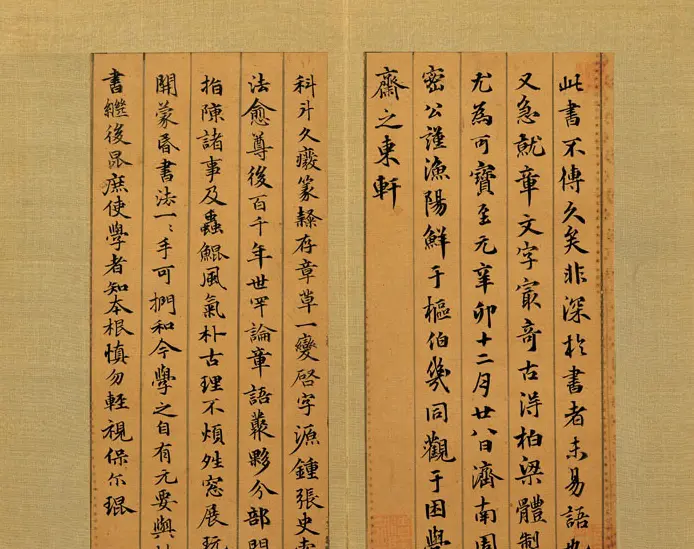 此書不傳久矣非深於書者未易語也
又急就章文字冣奇古得柏梁體製
尤為可寶至元辛卯十二月廿八日濟南周
密公謹漁陽鮮于樞伯幾同觀于困學
齋之東軒
科斗久癈篆隸存章草一變啓字源鍾張史
法愈尊後百千年世罕論章語叢夥分部
指陳諸事及蟲鯤風氣朴古理不煩姓窓展玩
開蒙昏書法一〻手可捫和今學之自有元要與
書繼後昆庶使學者知本根慎勿輕視保尔琨